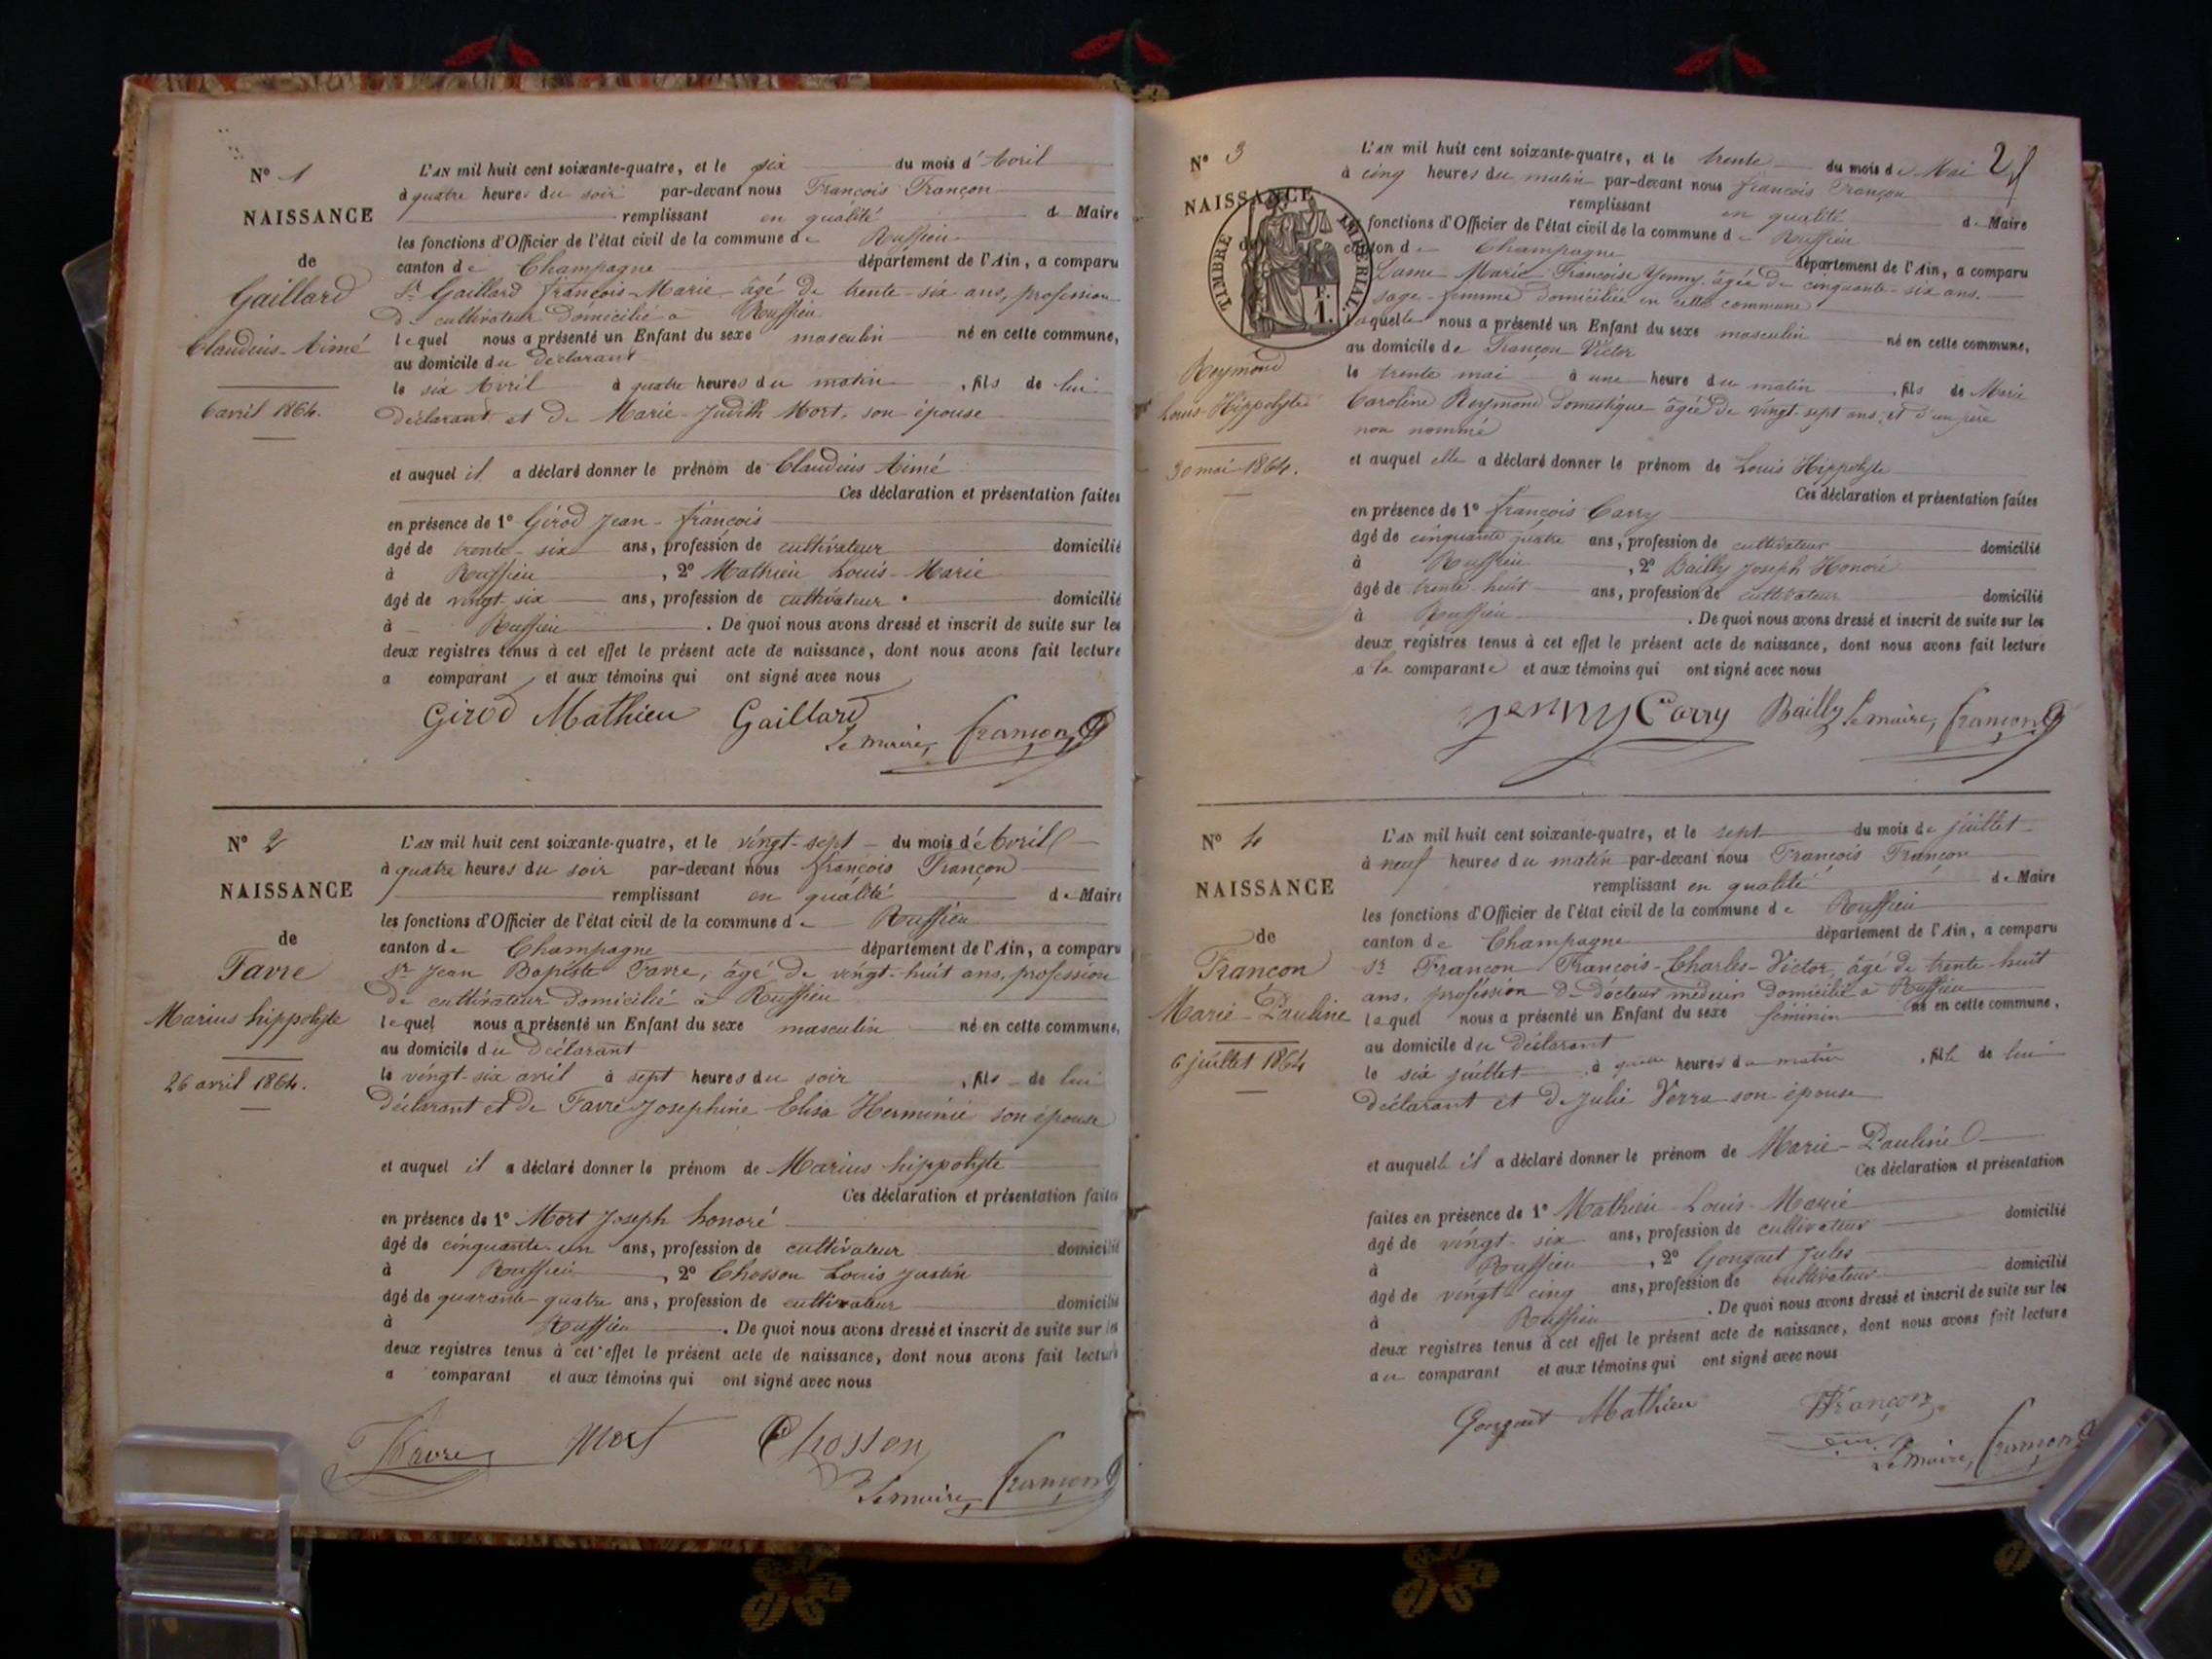 N° 1
NAISSANCE
de
Gaillard
Claudius-Aimé
6 avril 1864.
L'AN mil huit cent soixante-quatre, et le six du mois d'Avril
à quatre heures du soir par-devant nous François Françon
remplissant en qualité de Maire
les fonctions d'Officier de l'état civil de la commune de Ruffieu
canton de Champagne département de l'Ain, a comparu
Sr Gaillard françois-Marie âgé de trente-six ans, profession
de cultivateur domicilié à Ruffieu
lequel nous a présenté un Enfant du sexe masculin né en cette commune,
au domicile du déclarant
le six Avril à quatre heures du matin, fils de lui
déclarant et de Marie-Judith Mort, son épouse
et auquel il a déclaré donner le prénom de Claudius Aimé
Ces déclaration et présentation faites
en présence de 1° Girod Jean-françois
âgé de trente-six ans, profession de cultivateur domicilié
à Ruffieu, 2° Mathieu Louis-Marie
âgé de vingt-six ans, profession de cultivateur domicilié
à Ruffieu. De quoi nous avons dressé et inscrit de suite sur les
deux registres tenus à cet effet le présent acte de naissance, dont nous avons fait lecture
a comparant et aux témoins qui ont signé avec nous
Girod Mathieu Gaillard
Le maire, françon
N° 2
NAISSANCE
de
Favre
Marius hippolyte
26 avril 1864.
L'AN mil huit cent soixante-quatre, et le vingt-sept du mois d'Avril
à quatre heures du soir par-devant nous françois Françon
remplissant en qualité de Maire
les fonctions d'Officier de l'état civil de la commune de Ruffieu
canton de Champagne département de l'Ain, a comparu
Sr Jean Baptiste Favre, âgé de vingt-huit ans, profession
de cultivateur domicilié à Ruffieu
lequel nous a présenté un Enfant du sexe masculin né en cette commune,
au domicile du déclarant
le vingt-six avril à sept heures du soir, fils de lui
déclarant et de Favre Josephine Elisa Herminie son épouse
et auquel il a déclaré donner le prénom de Marius hippolyte
Ces déclaration et présentation faites
en présence de 1° Mort Joseph honoré
âgé de cinquante-un ans, profession de cultivateur domicilié
à Ruffieu, 2° Chosson Louis Justin
âgé de quarante-quatre ans, profession de cultivateur domicilié
à Ruffieu. De quoi nous avons dressé et inscrit de suite sur les
deux registres tenus à cet effet le présent acte de naissance, dont nous avons fait lecture
a comparant et aux témoins qui ont signé avec nous
Favre Mort Chosson
Le maire, françon
N° 3
NAISSANCE
de
TIMBRE IMPÉRIAL
F. 1.
Reymond
Louis-Hippolyte
30 mai 1864.
L'AN mil huit cent soixante-quatre, et le trente du mois de Mai
à cinq heures du matin par-devant nous françois Françon
remplissant en qualité de Maire
fonctions d'Officier de l'état civil de la commune de Ruffieu
canton de Champagne département de l'Ain, a comparu
Dame Marie Françoise Yenny, âgée de cinquante-six ans,
sage-femme domiciliée en cette commune
laquelle nous a présenté un Enfant du sexe masculin né en cette commune,
au domicile de Françon Victor
le trente mai à une heure du matin, fils de Marie
Caroline Reymond domestique âgée de vingt-sept ans, et d'un père
non nommé
et auquel elle a déclaré donner le prénom de Louis Hippolyte
Ces déclaration et présentation faites
en présence de 1° françois Carry
âgé de cinquante quatre ans, profession de cultivateur domicilié
à Ruffieu, 2° Bailly Joseph Honoré
âgé de trente huit ans, profession de cultivateur domicilié
à Ruffieu. De quoi nous avons dressé et inscrit de suite sur les
deux registres tenus à cet effet le présent acte de naissance, dont nous avons fait lecture
a la comparante et aux témoins qui ont signé avec nous
yenny Carry Bailly Le maire, françon
N° 4
NAISSANCE
de
Françon
Marie-Pauline
6 juillet 1864
L'AN mil huit cent soixante-quatre, et le sept du mois de juillet
à neuf heures du matin par-devant nous François Françon
remplissant en qualité de Maire
les fonctions d'Officier de l'état civil de la commune de Ruffieu
canton de Champagne département de l'Ain, a comparu
Sr Françon François-Charles-Victor, âgé de trente-huit
ans, profession de docteur médecin domicilié à Ruffieu
lequel nous a présenté un Enfant du sexe feminin né en cette commune,
au domicile du Déclarant
le six juillet à quatre heures du matin, fille de lui
déclarant et de Julie Verra son épouse
et auquelle il a déclaré donner le prénom de Marie-Pauline
Ces déclaration et présentation
faites en présence de 1° Mathieu Louis-Marie
âgé de vingt-six ans, profession de cultivateur domicilié
à Ruffieu, 2° Gonguet Jules
âgé de vingt-cinq ans, profession de cultivateur domicilié
à Ruffieu. De quoi nous avons dressé et inscrit de suite sur les
deux registres tenus à cet effet le présent acte de naissance, dont nous avons fait lecture
au comparant et aux témoins qui ont signé avec nous
Gonguet Mathieu Françon
Le maire, françon